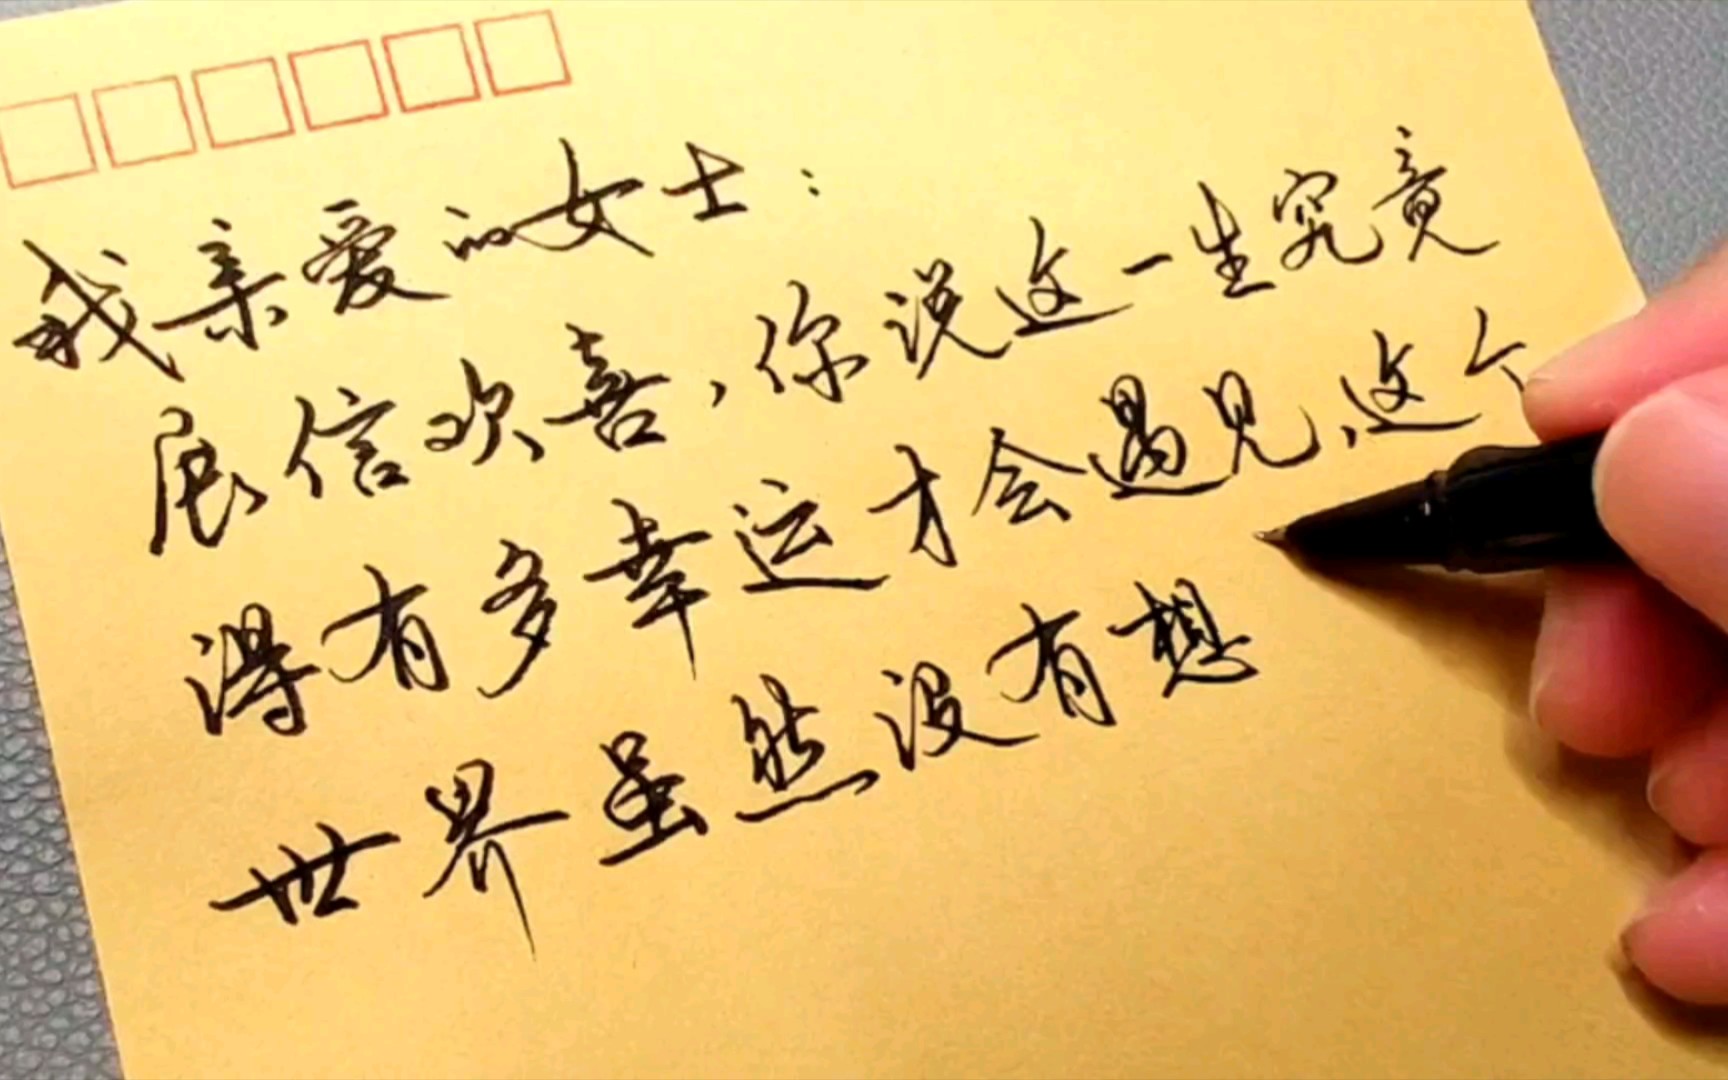 我亲爱的女士：
展信欢喜，你说这一生究竟
得有多幸运才会遇见、这个
世界虽然没有想